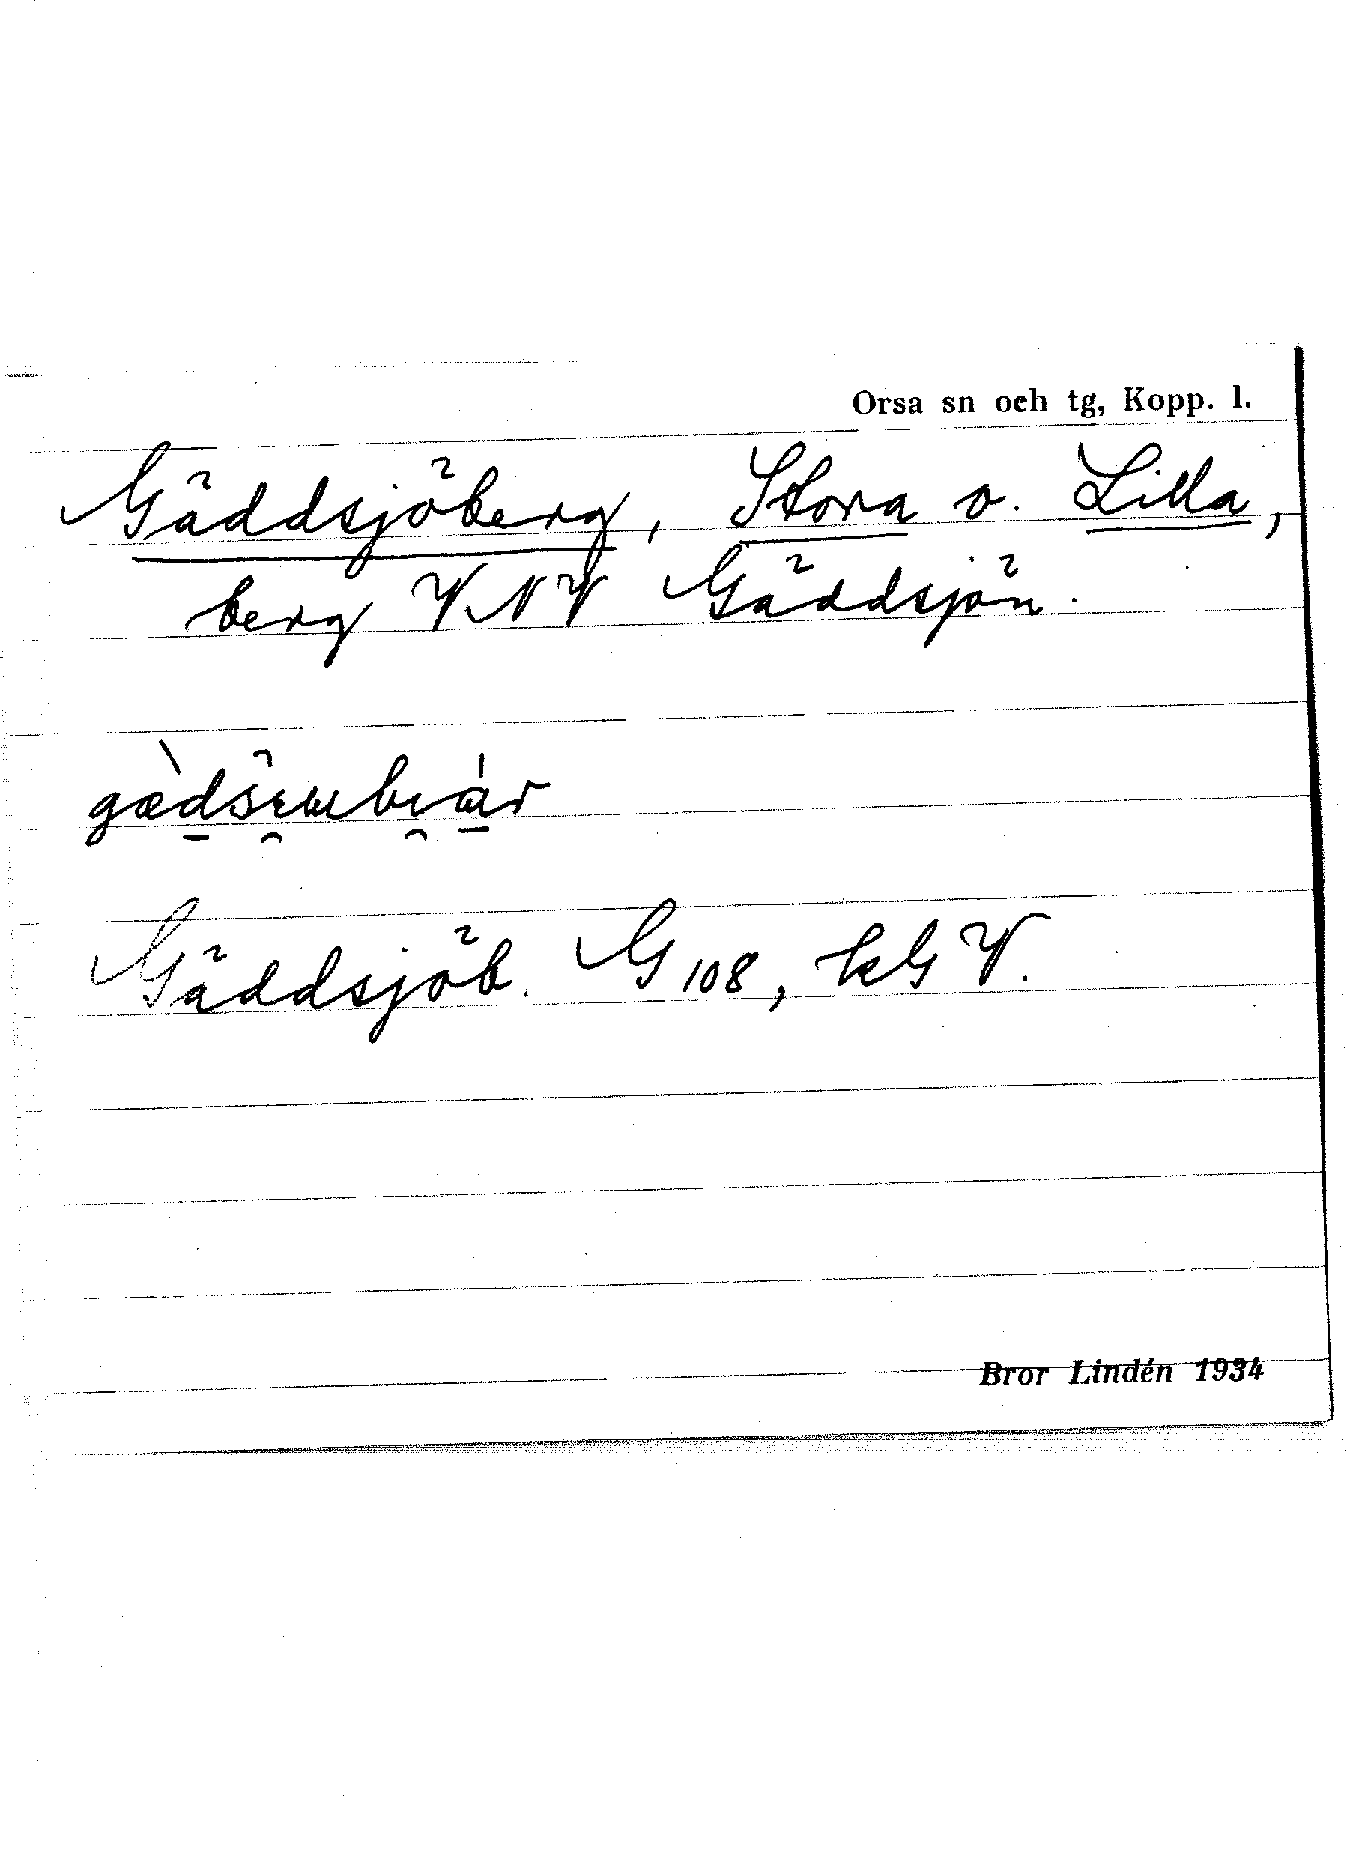 Orsa sn och tg, Kopp. l.
Gäddsjöberg, Stora o. Lilla,
berg VNV Gäddsjön.
Gäddsjöb. G 108, kG V.
Bror Lindén 1934